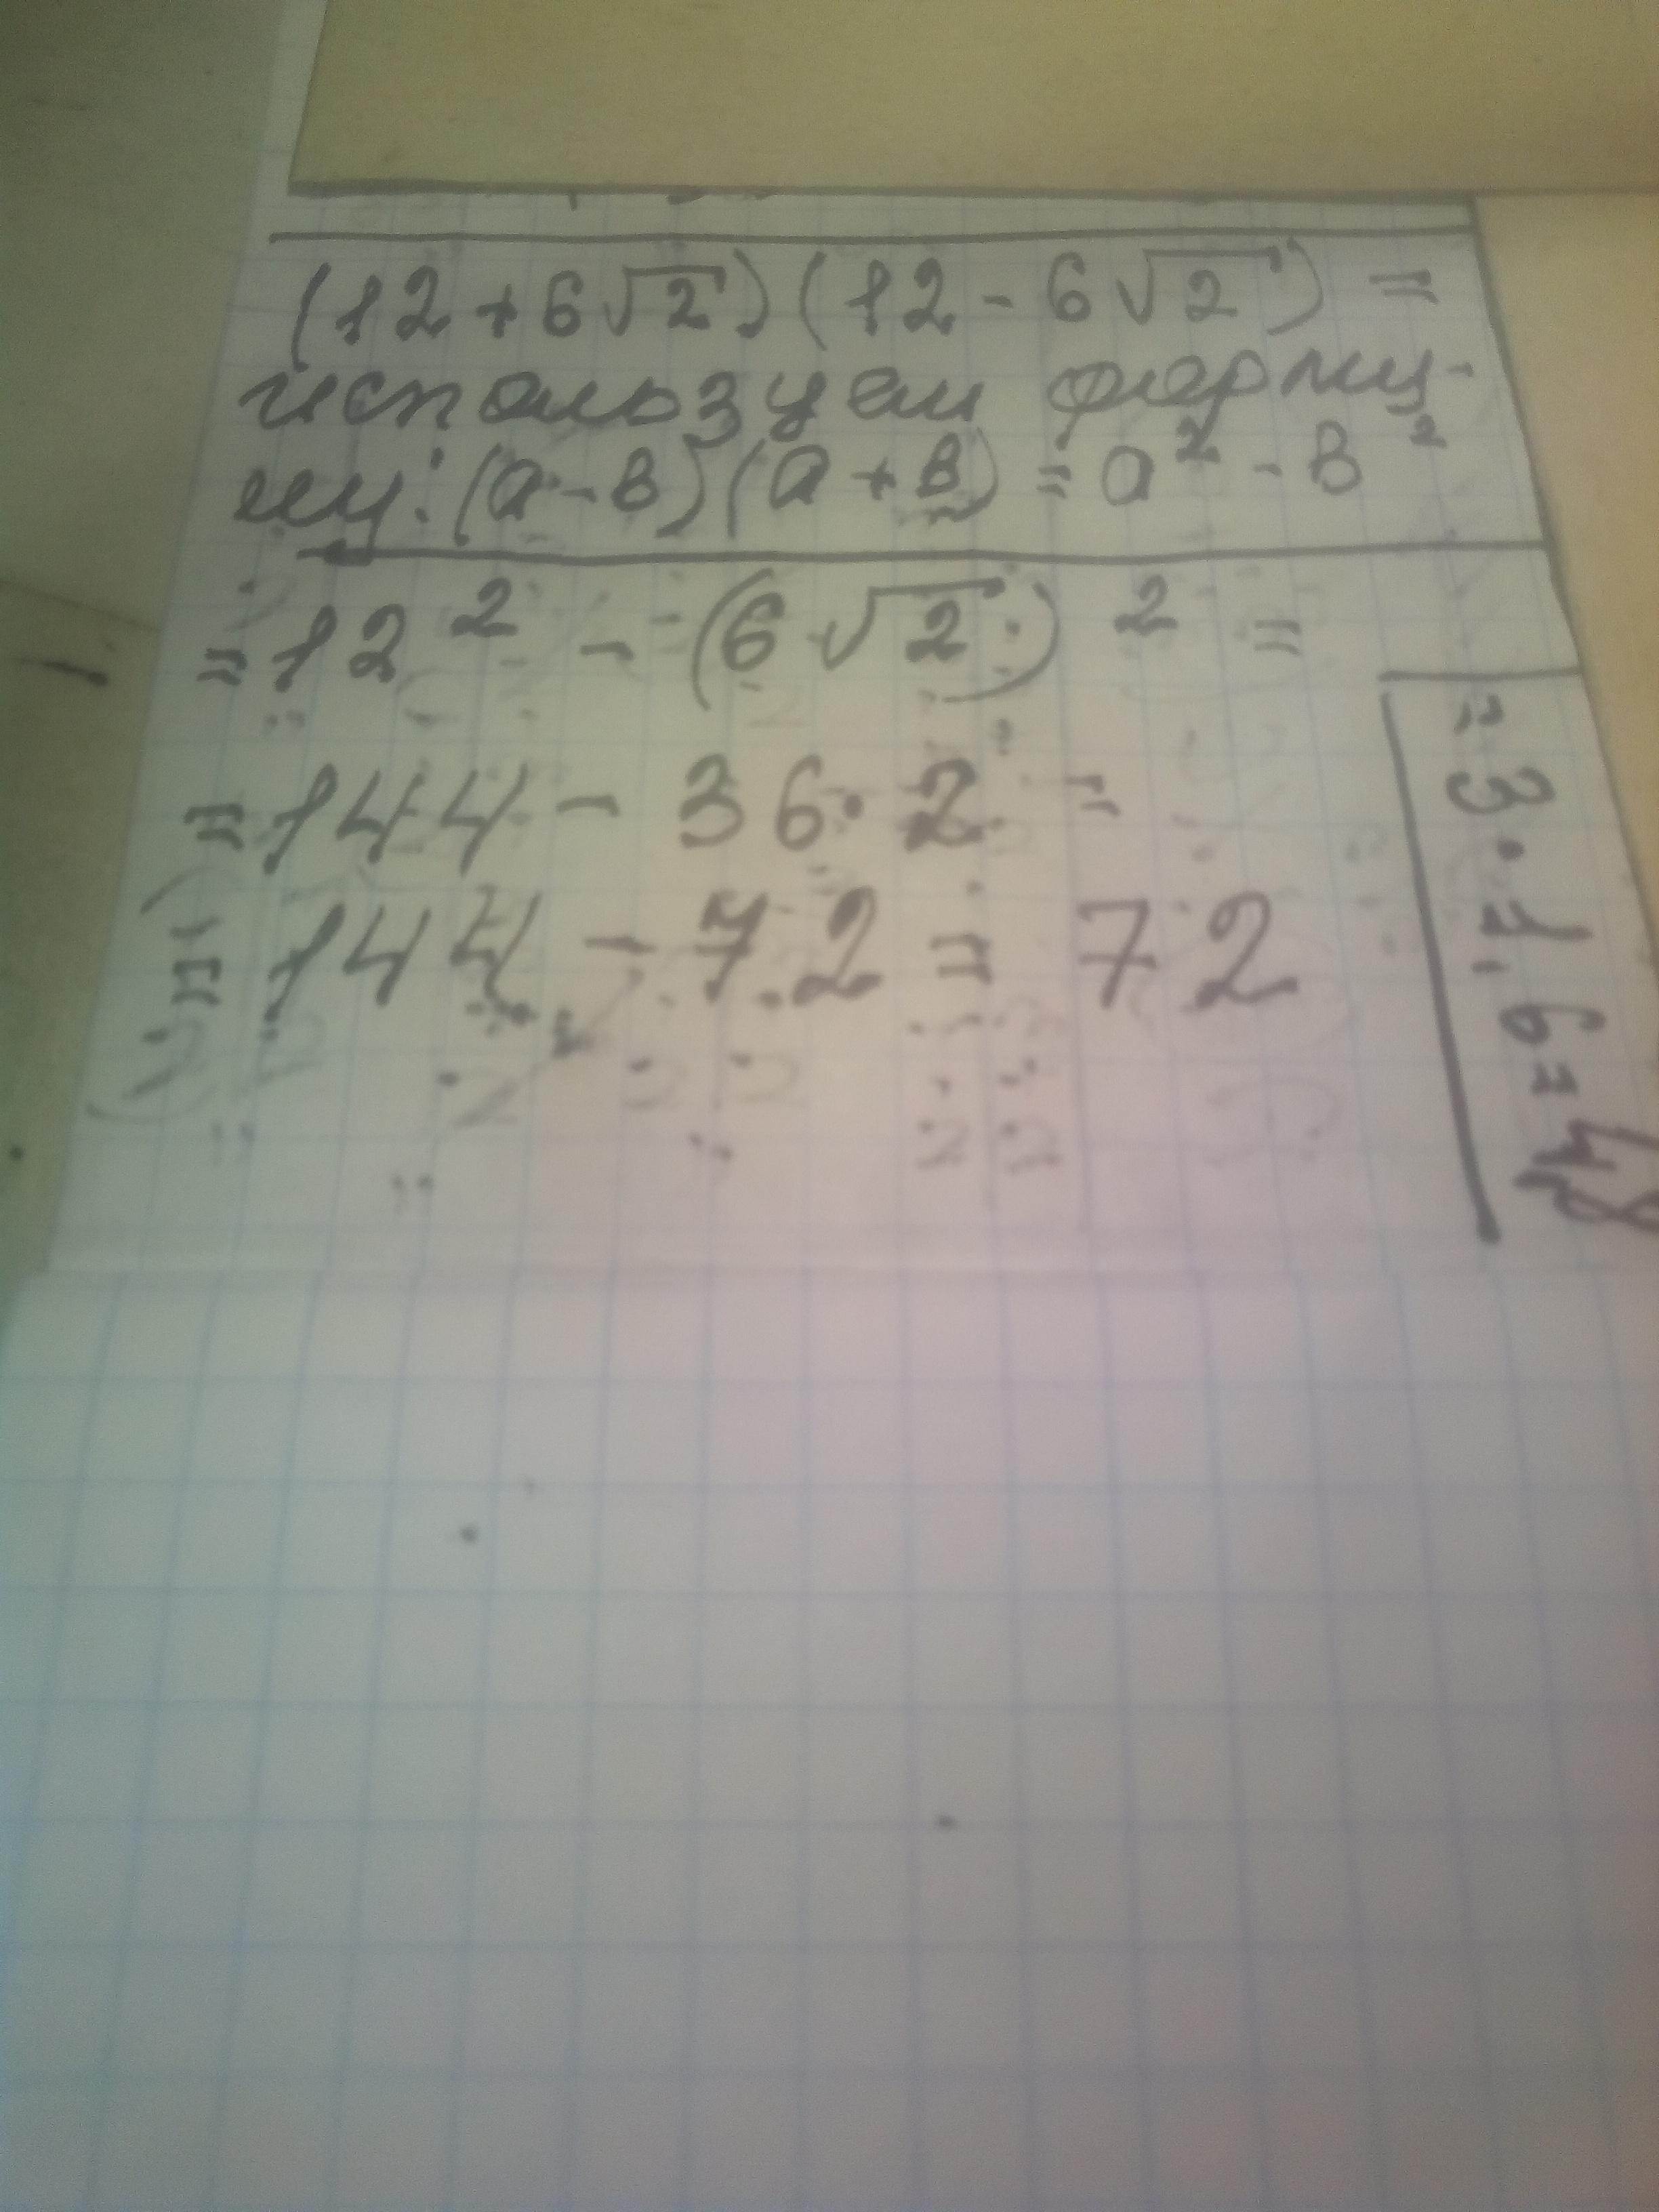 (12+6√2)(12-6√2)=
используем форму-
лу: (а-в)(а+в)=а²-в²
=12²-(6√2)²=
=144-36·2=
=144-72=72
=3·1,6=4,8